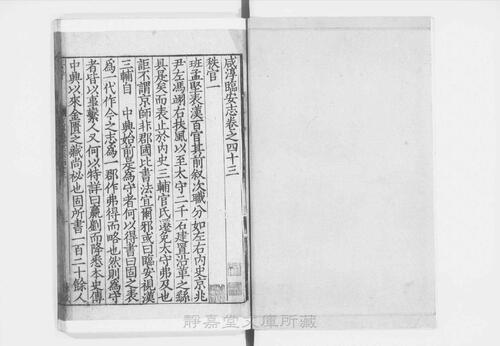 咸淳臨安志卷之四十三
秩官一
班孟堅表漢百官其前叙次職分如左右內史京兆
尹左馮翊右扶風以至太守二千石建置沿革之繇
具是矣而表止於內史三輔官氏遷免太守弗及也
詎不謂京師非郡國比書法宜爾邪或曰臨安視漢
三輔自 中興始前是為守者何以得書曰固之表
為一代作今之志為一郡作弗得而略也然則為守
者皆以事繫人又何以特詳曰嬴劉而降悉本史傳
中興以來金匱之藏尚祕也固所書一百二十餘人
靜嘉堂文庫所藏